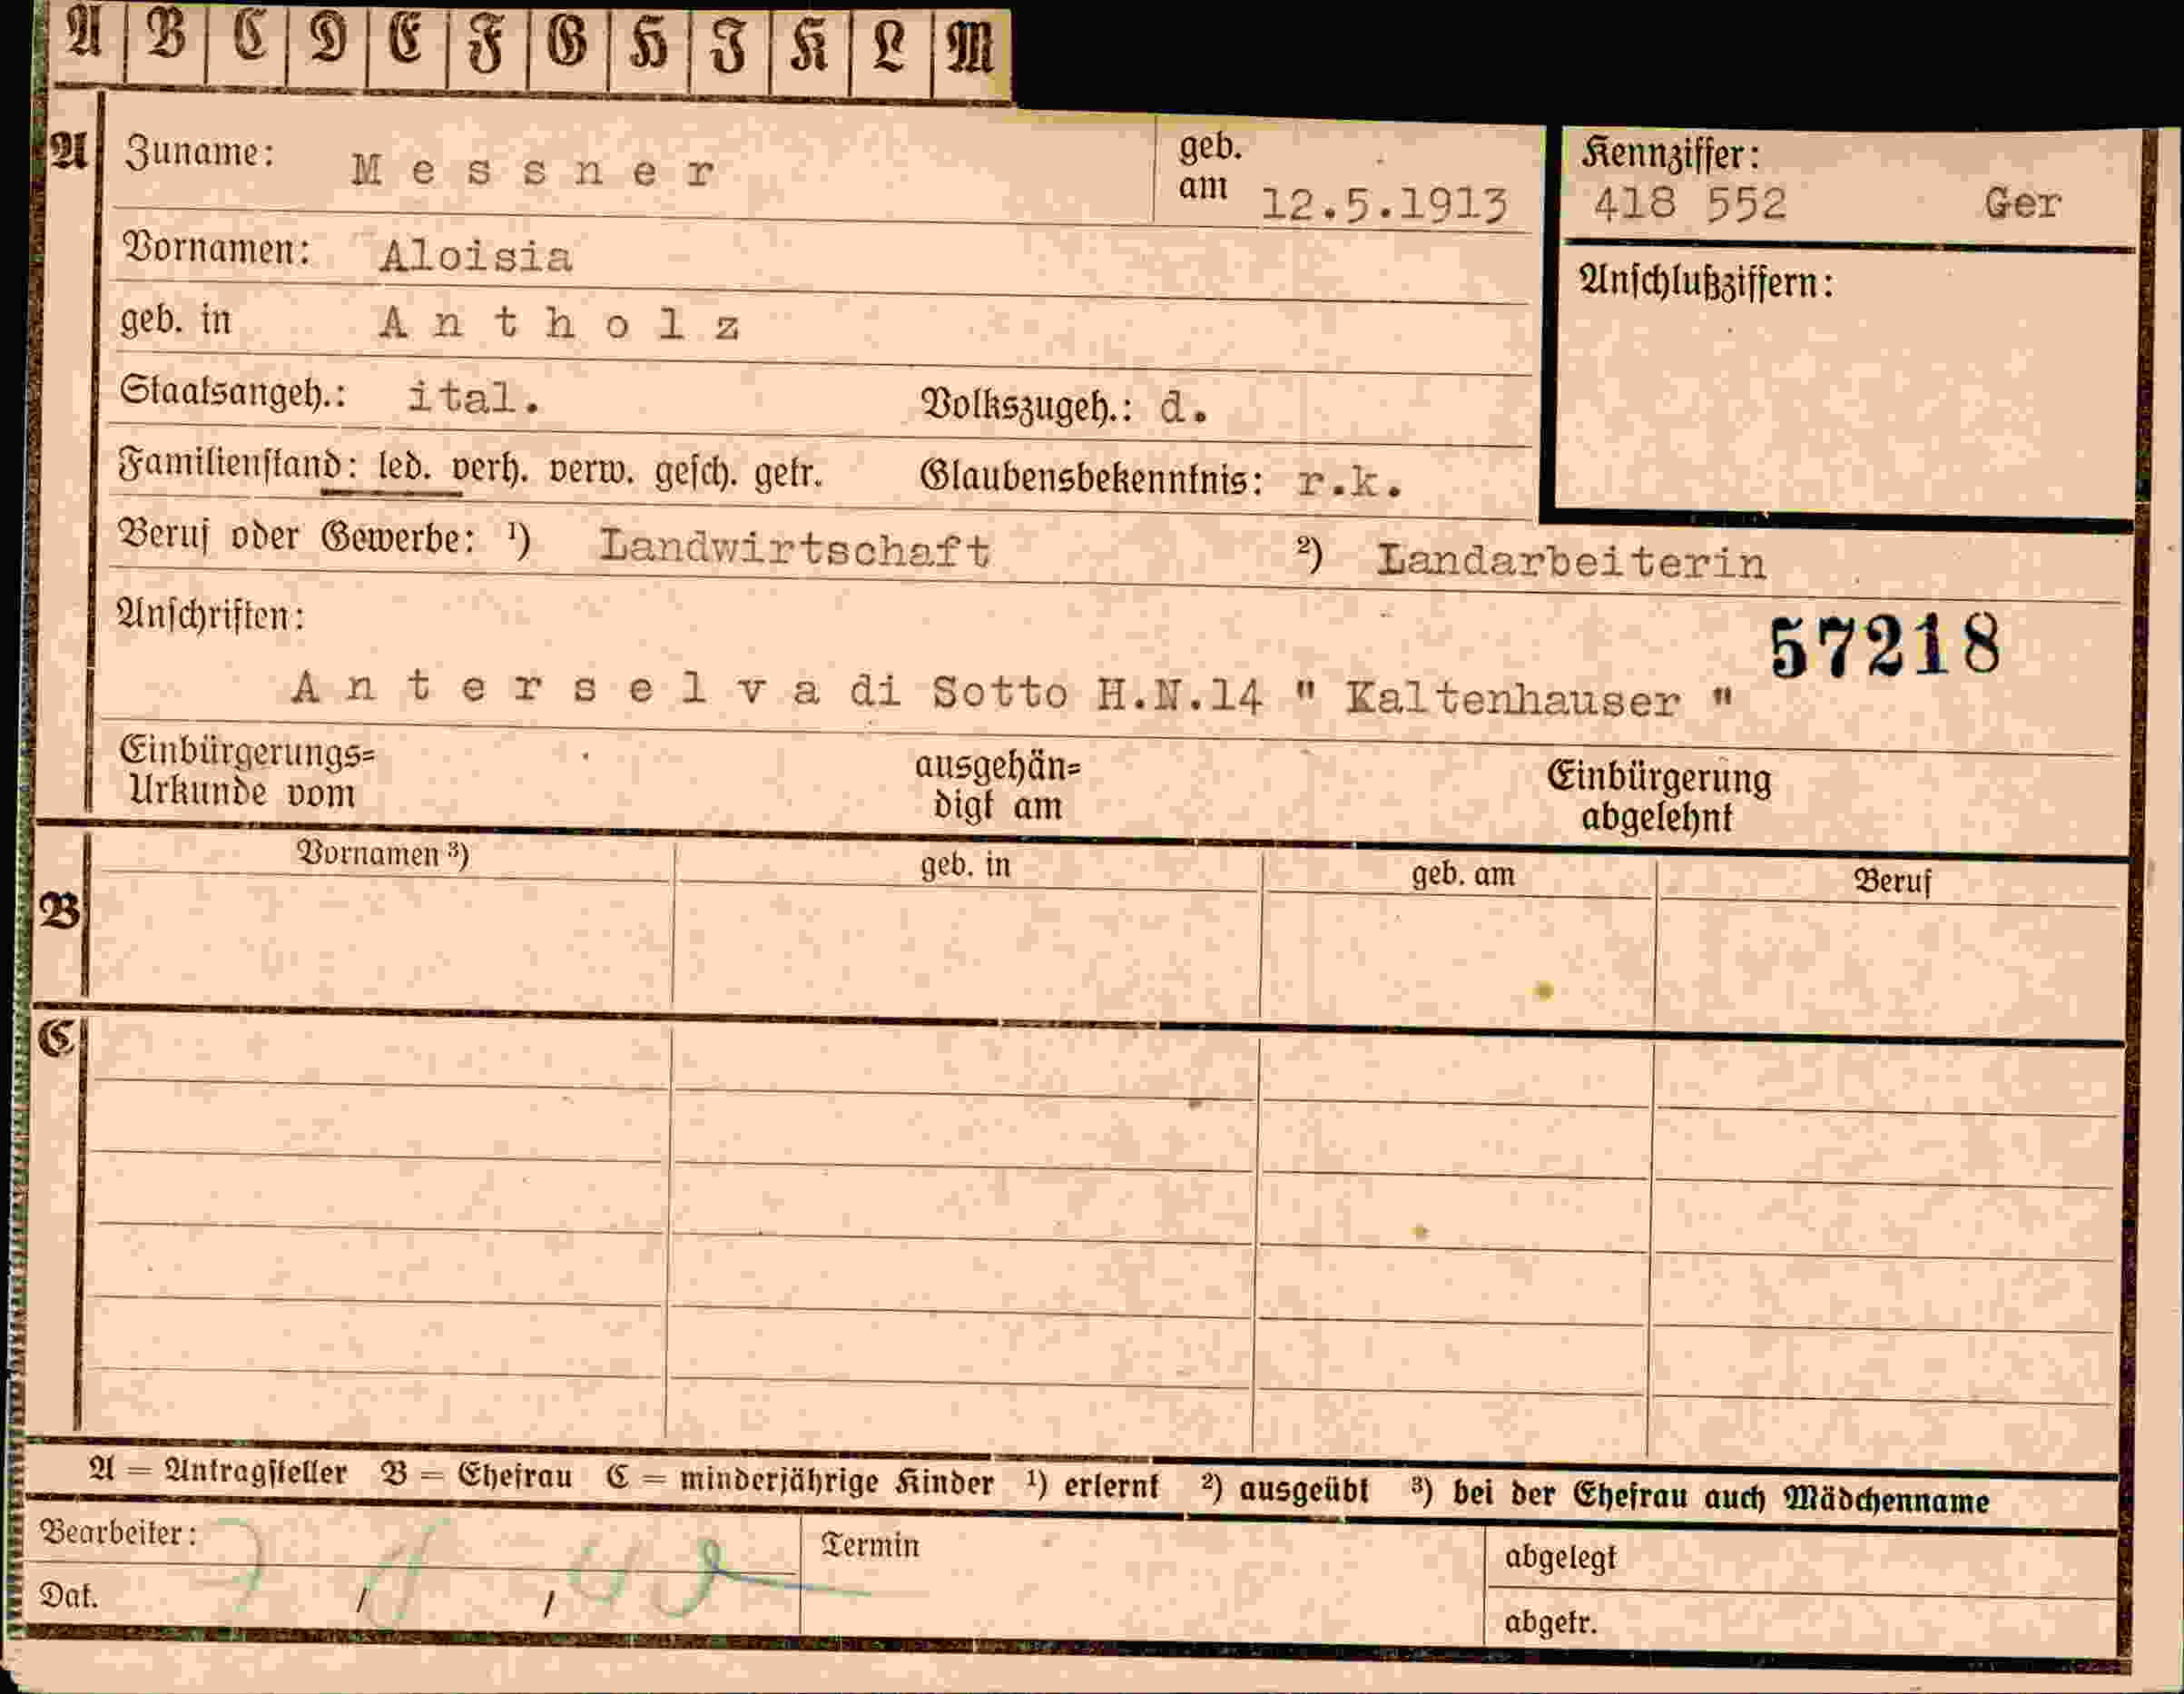 A B C D E F G H I K L M
A Zuname: Messner geb. am 12.5.1913 Kennziffer: 418 552 Ger
Vornamen: Aloisia Anschlußziffern:
geb. in Antholz
Staatsangeh.: ital. Volkszugeh.: d.
Familienstand: led. verh. verw. gesch. getr. Glaubensbekenntnis: r.k.
Beruf oder Gewerbe: ¹) Landwirtschaft ²) Landarbeiterin
Anschriften: 57218
Anterselva di Sotto H.N.14 " Kaltenhauser "
Einbürgerungs= ausgehän= Einbürgerung
Urkunde vom digt am abgelehnt
Vornamen ³) geb. in geb. am Beruf
B
C
A = Antragsteller B = Ehefrau C = minderjährige Kinder ¹) erlernt ²) ausgeübt ³) bei der Ehefrau auch Mädchenname
Bearbeiter: Termin abgelegt
Dat. / / abgetr.